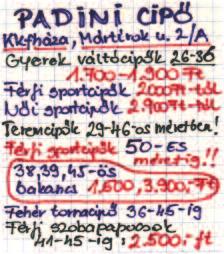 PADINI CIPŐ
Kkfháza, Mártírok u. 2/A
Gyerek váltócipők 26-36
1.700-1.900 Ft
Férfi sportcipők 2000 Ft-tól
Női sportcipők 2.900 Ft-tól
Teremcipők 29-46-os méretben!
Férfi sportcipők 50-ES
méretig!!
38,39,45-ös
bakancs 1,500,3.900,-Ft
Fehér tornacipő 36-45-ig
Férfi szobapapucsok
41-45-ig: 2.500,-ft